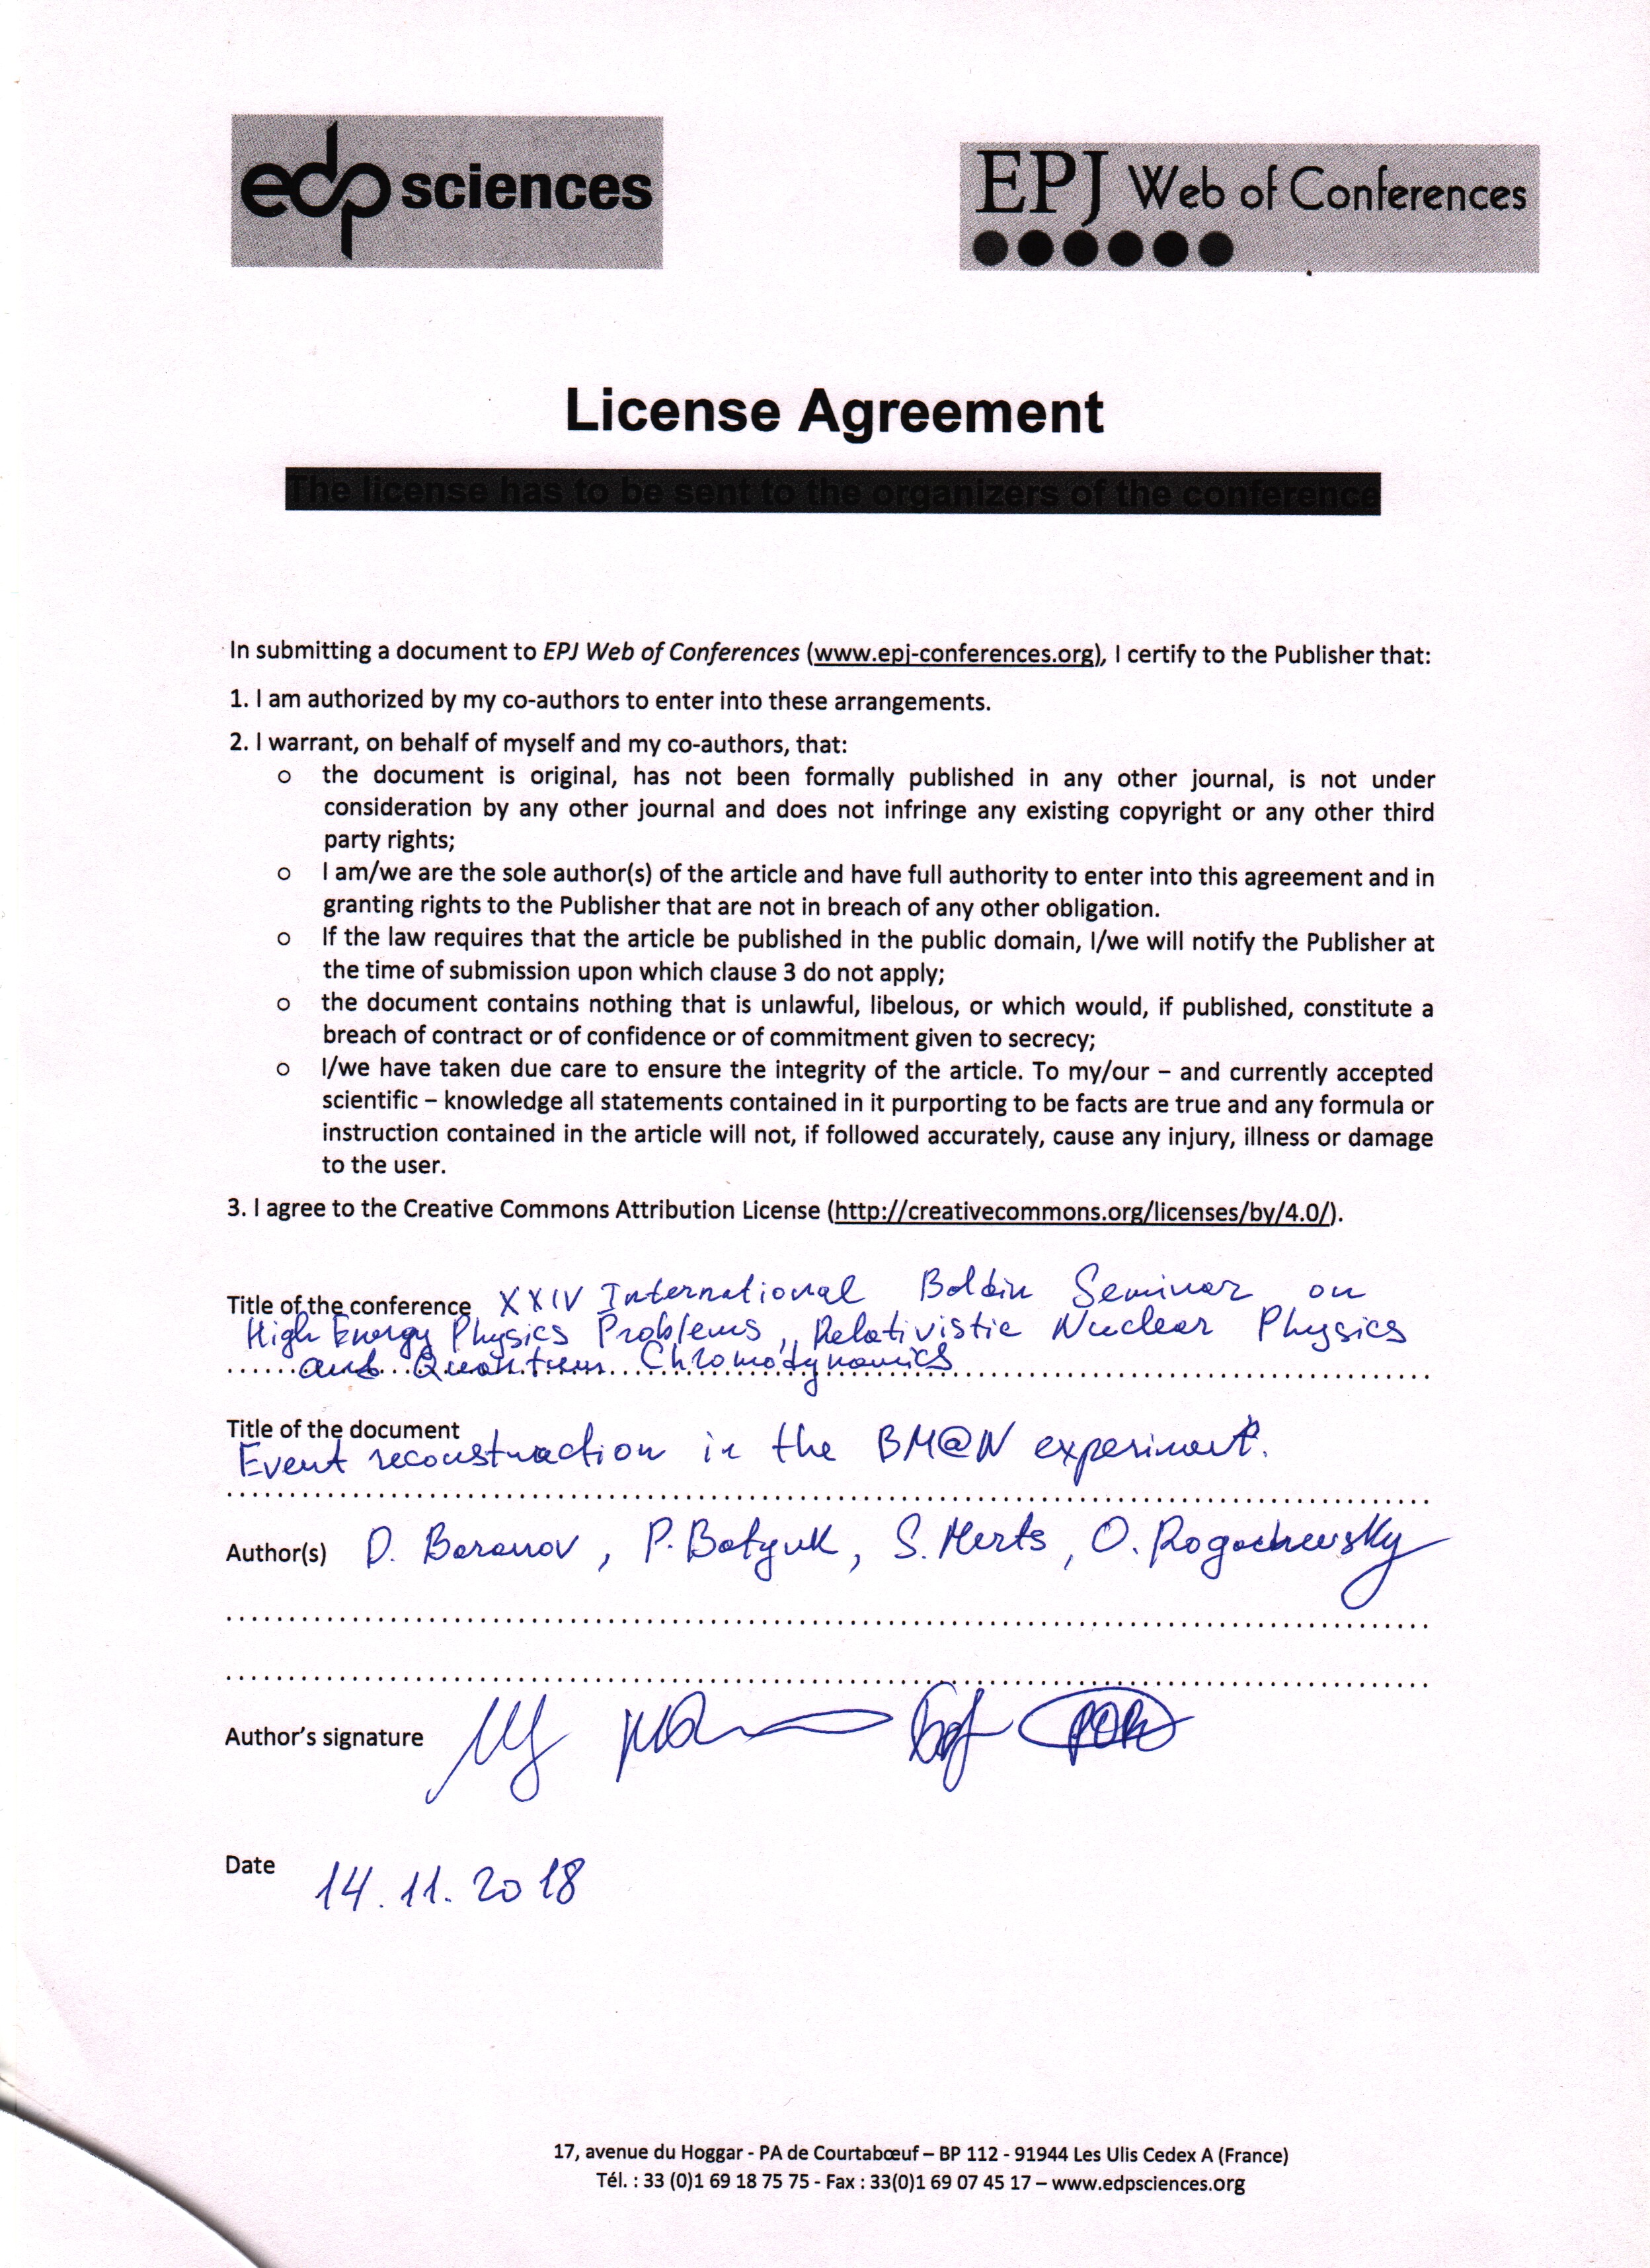 edp sciences
EPJ Web of Conferences
License Agreement
The license has to be sent to the organizers of the conference
In submitting a document to EPJ Web of Conferences (www.epj-conferences.org), I certify to the Publisher that:
1. I am authorized by my co-authors to enter into these arrangements.
2. I warrant, on behalf of myself and my co-authors, that:
o the document is original, has not been formally published in any other journal, is not under
consideration by any other journal and does not infringe any existing copyright or any other third
party rights;
o I am/we are the sole author(s) of the article and have full authority to enter into this agreement and in
granting rights to the Publisher that are not in breach of any other obligation.
o If the law requires that the article be published in the public domain, I/we will notify the Publisher at
the time of submission upon which clause 3 do not apply;
o the document contains nothing that is unlawful, libelous, or which would, if published, constitute a
breach of contract or of confidence or of commitment given to secrecy;
o I/we have taken due care to ensure the integrity of the article. To my/our – and currently accepted
scientific – knowledge all statements contained in it purporting to be facts are true and any formula or
instruction contained in the article will not, if followed accurately, cause any injury, illness or damage
to the user.
3. I agree to the Creative Commons Attribution License (http://creativecommons.org/licenses/by/4.0/).
Title of the conference XXIV International Baldin Seminar on
High Energy Physics Problems, Relativistic Nuclear Physics
and Quantum Chromodynamics
Title of the document
Event reconstruction in the BM@N experiment.
Author(s) D. Baranov, P. Batyuk, S. Merts, O. Rogachevsky
Author's signature
Date 14.11.2018
17, avenue du Hoggar - PA de Courtabœuf – BP 112 - 91944 Les Ulis Cedex A (France)
Tél. : 33 (0)1 69 18 75 75 - Fax : 33(0)1 69 07 45 17 – www.edpsciences.org